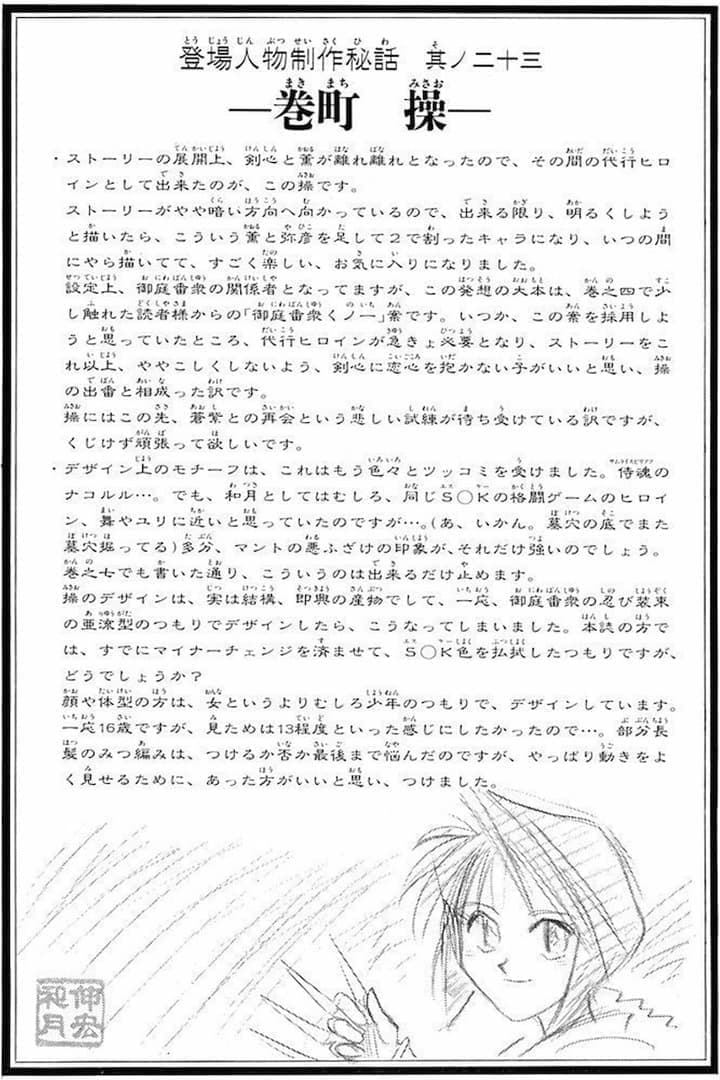 登場人物制作秘話 其ノ二十三
―巻町 操―
・ストーリーの展開上、剣心と薫が離れ離れとなったので、その間の代行ヒロ
インとして出来たのが、この操です。
ストーリーがやや暗い方向へ向かっているので、出来る限り、明るくしよう
と描いたら、こういう薫と弥彦を足して2で割ったキャラになり、いつの間
にやら描いてて、すごく楽しい、お気に入りになりました。
設定上、御庭番衆の関係者となってますが、この発想の大本は、巻之四で少
し触れた読者様からの「御庭番衆くノ一」案です。いつか、この案を採用しよ
うと思っていたところ、代行ヒロインが急きょ必要となり、ストーリーをこ
れ以上、ややこしくしないよう、剣心に恋心を抱かない子がいいと思い、操
の出番と相成った訳です。
操にはこの先、蒼紫との再会という悲しい試練が待ち受けている訳ですが、
くじけず頑張って欲しいです。
・デザイン上のモチーフは、これはもう色々とツッコミを受けました。侍魂の
ナコルル…。でも、和月としてはむしろ、同じS○Kの格闘ゲームのヒロイ
ン、舞やユリに近いと思っていたのですが…。(あ、いかん。墓穴の底でまた
墓穴掘ってる)多分、マントの悪ふざけの印象が、それだけ強いのでしょう。
巻之七でも書いた通り、こういうのは出来るだけ止めます。
操のデザインは、実は結構、即興の産物でして、一応、御庭番衆の忍び装束
の亜流型のつもりでデザインしたら、こうなってしまいました。本誌の方で
は、すでにマイナーチェンジを済ませて、S○K色を払拭したつもりですが、
どうでしょうか?
顔や体型の方は、女というよりむしろ少年のつもりで、デザインしています。
一応16歳ですが、見ためは13程度といった感じにしたかったので…。部分長
髪のみつ編みは、つけるか否か最後まで悩んだのですが、やっぱり動きをよ
く見せるために、あった方がいいと思い、つけました。
伸宏
和月